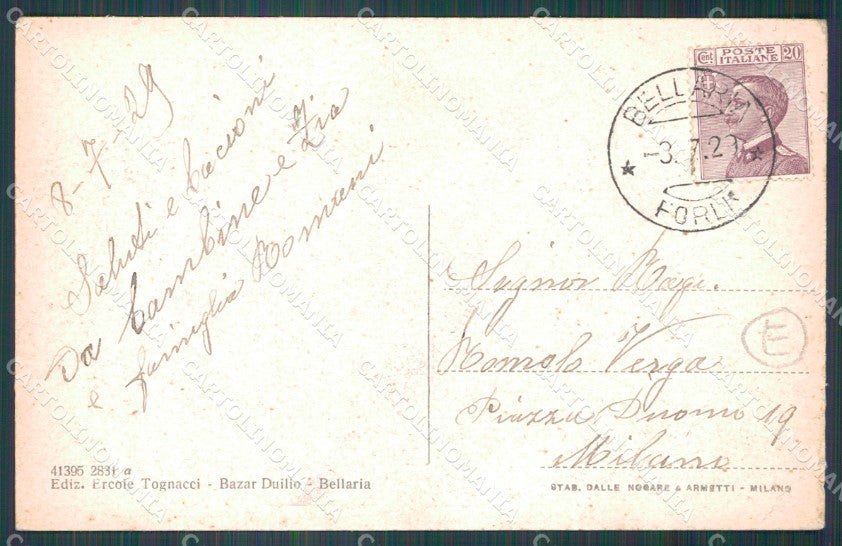 8-7-29
Saluti e bacioni
Da bambine e Zia
e famiglia
41395 2831 a
Ediz. Ercole Tognacci - Bazar Duilio - Bellaria
Cent POSTE ITALIANE 20
BELLARIA
-3.7.29
FORLI
Signor Rag.
Romolo Verga
Piazza Duomo 19
Milano
E
STAB. DALLE NOGARE & ARMETTI - MILANO
CARTOLINOMANIA